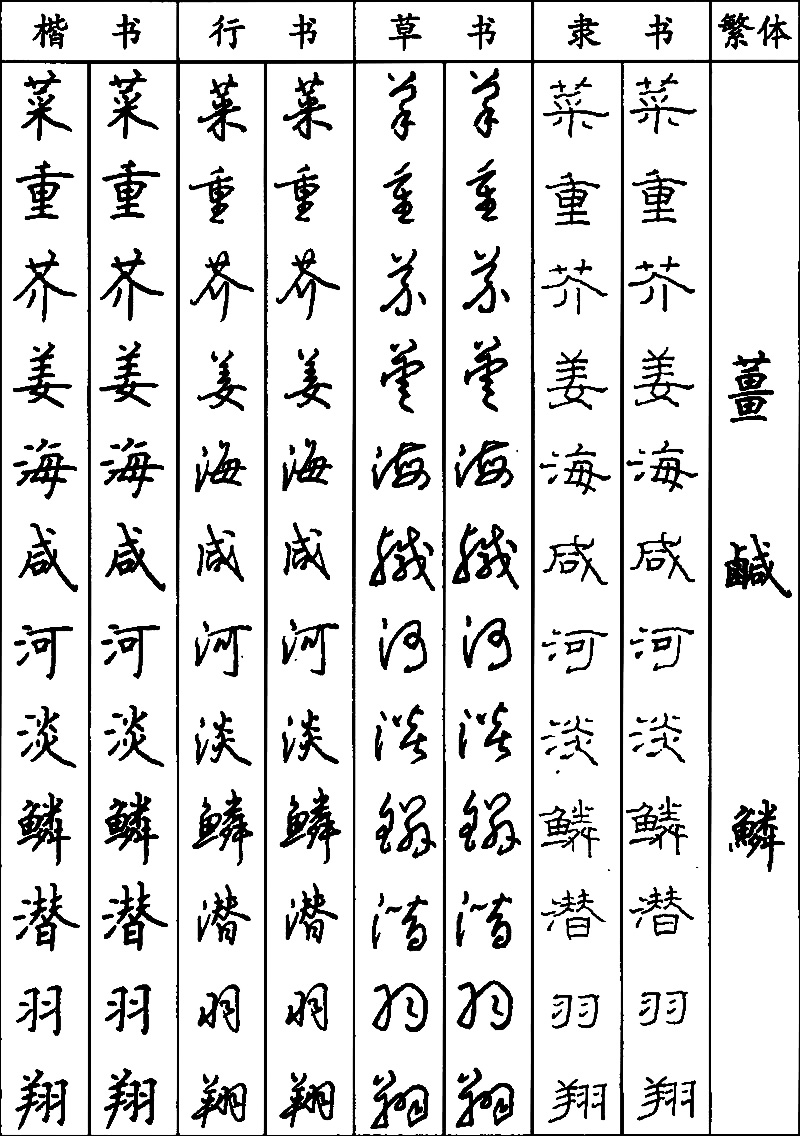 楷书 行书 草书 隶书 繁体
菜 菜 菜 菜 菜 菜 菜 菜
重 重 重 重 重 重 重 重
芥 芥 芥 芥 芥 芥 芥 芥
姜 姜 姜 姜 薑 薑 姜 姜 薑
海 海 海 海 海 海 海 海
咸 咸 咸 咸 鹹 鹹 咸 咸 鹹
河 河 河 河 河 河 河 河
淡 淡 淡 淡 淡 淡 淡 淡
鳞 鳞 鳞 鳞 鳞 鳞 鳞 鳞 鱗
潜 潜 潜 潜 潜 潜 潜 潜
羽 羽 羽 羽 羽 羽 羽 羽
翔 翔 翔 翔 翔 翔 翔 翔